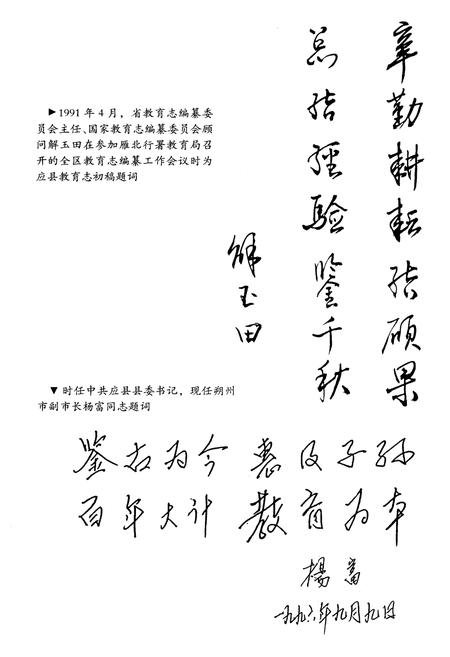 ▶1991 年 4 月，省教育志编纂委
员会主任、国家教育志编纂委员会顾
问解玉田在参加雁北行署教育局召
开的全区教育志编纂工作会议时为
应县教育志初稿题词
辛勤耕耘结硕果
总结经验鉴千秋
解玉田
▼ 时任中共应县县委书记，现任朔州
市副市长杨富同志题词
鉴古为今 惠及子孙
百年大计 教育为本
楊富
一九九六年九月九日